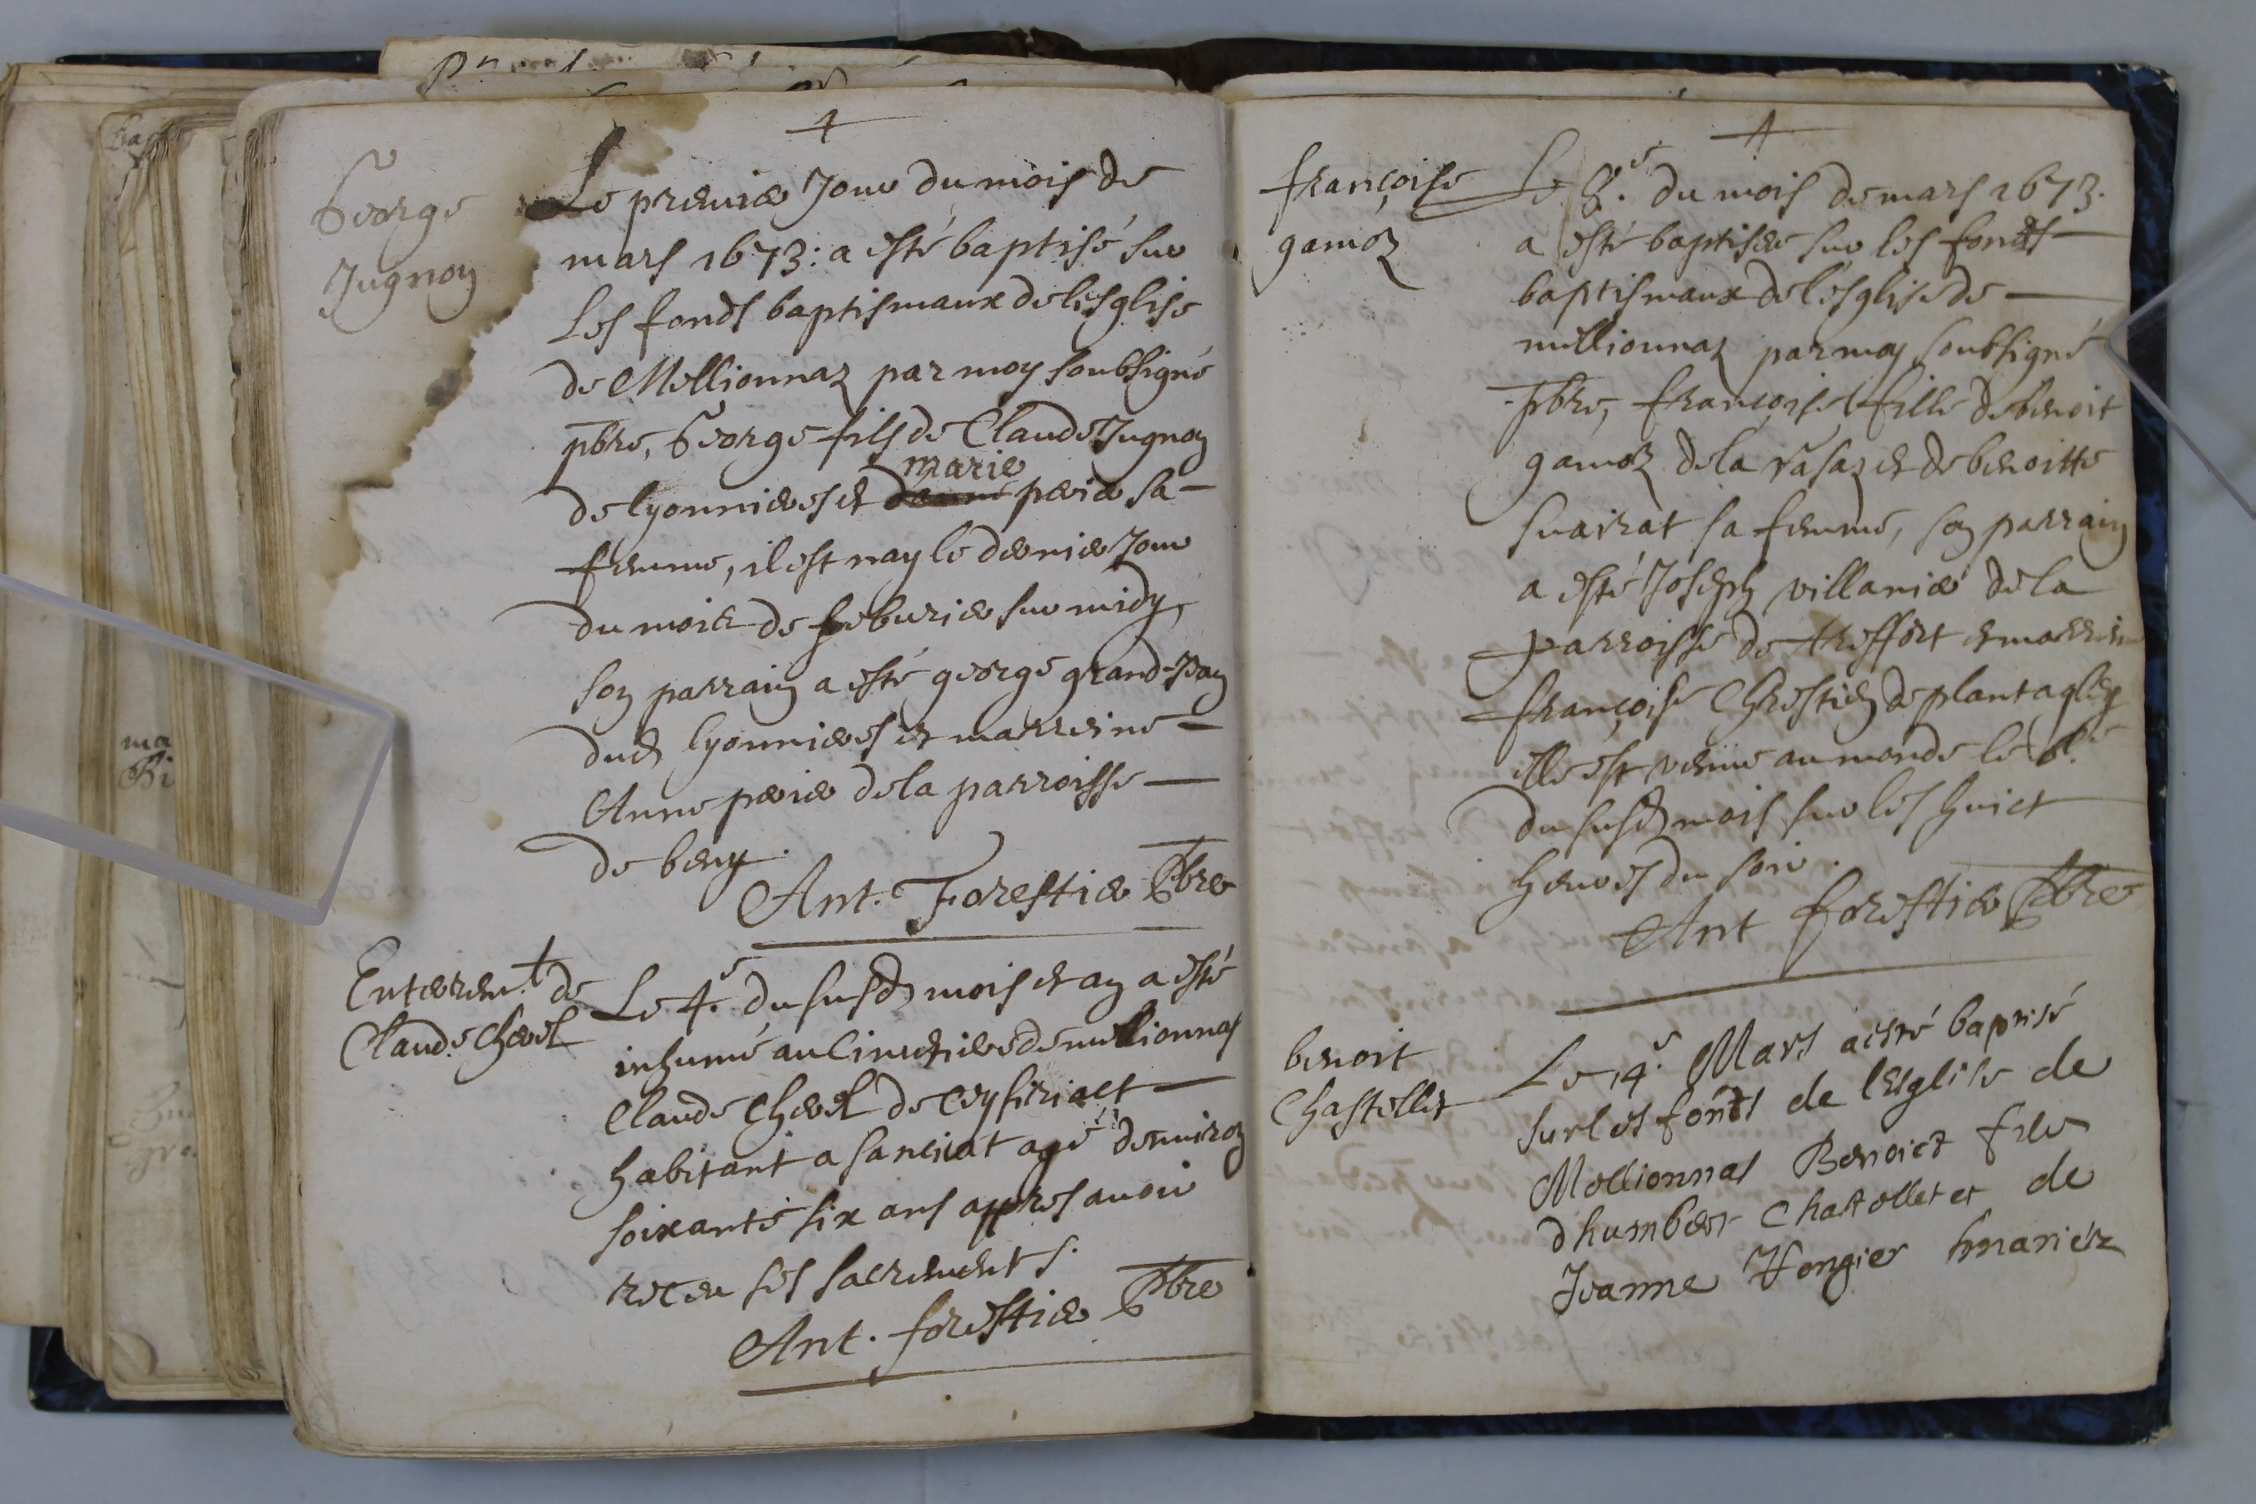 George
Jugnon
Le premier Jour du mois de
mars 1673: a esté baptisé sur
les fonds baptismaux de lesglise
de Mellionnaz par moy soubsigné
pbre, George fils de Claude Jugnon
de lyonnieres et marie perier sa
femme, il est nay le dernier Jour
du mois de feburier sur midy,
son parrain a esté george grand-Jean
dud lyonnieres et marreine
Anne perier de la parroisse
de beny.
Ant. Forestier Pbre
Enterremt de
Claude Chevel
Le 4.e du susd mois et an a esté
inhumé au Cimetiere de mellionnas
Claude Chevel de Ceyseriact
habitant a sanciat agé denviron
soixante six ans appres avoir
receu ses sacrements.
Ant. forestier Pbre
françoise
gamoz
Le 8.e du mois de mars 1673.
a esté baptisée sur les fonds
baptismaux de lésglise de
millionnaz par moy soubsigné
pbre, françoise fille de benoit
gamoz de la rasaz et de benoitte
suairat sa femme, son parrain
a esté Joseph villanier de la
parroisse de treffort et marreine
françoise Chrestien de plantaglay
elle est venue au monde le 6.e
du susd mois sur les huict
heures du soir.
Ant forestier Pbre
benoit
Chastellet
Le 14.e Mars a esté baptisé
sur les fonds de lEsglise de
Mellionnas Benoict fils
dhumbert Chastellet et de
Jeanne Vongier mariéz